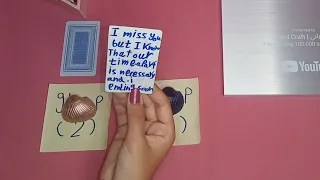 I miss you
but I know
That our
time apart
is necessary
and
ending soon
g p
(2)
g p
100 000
YouTube